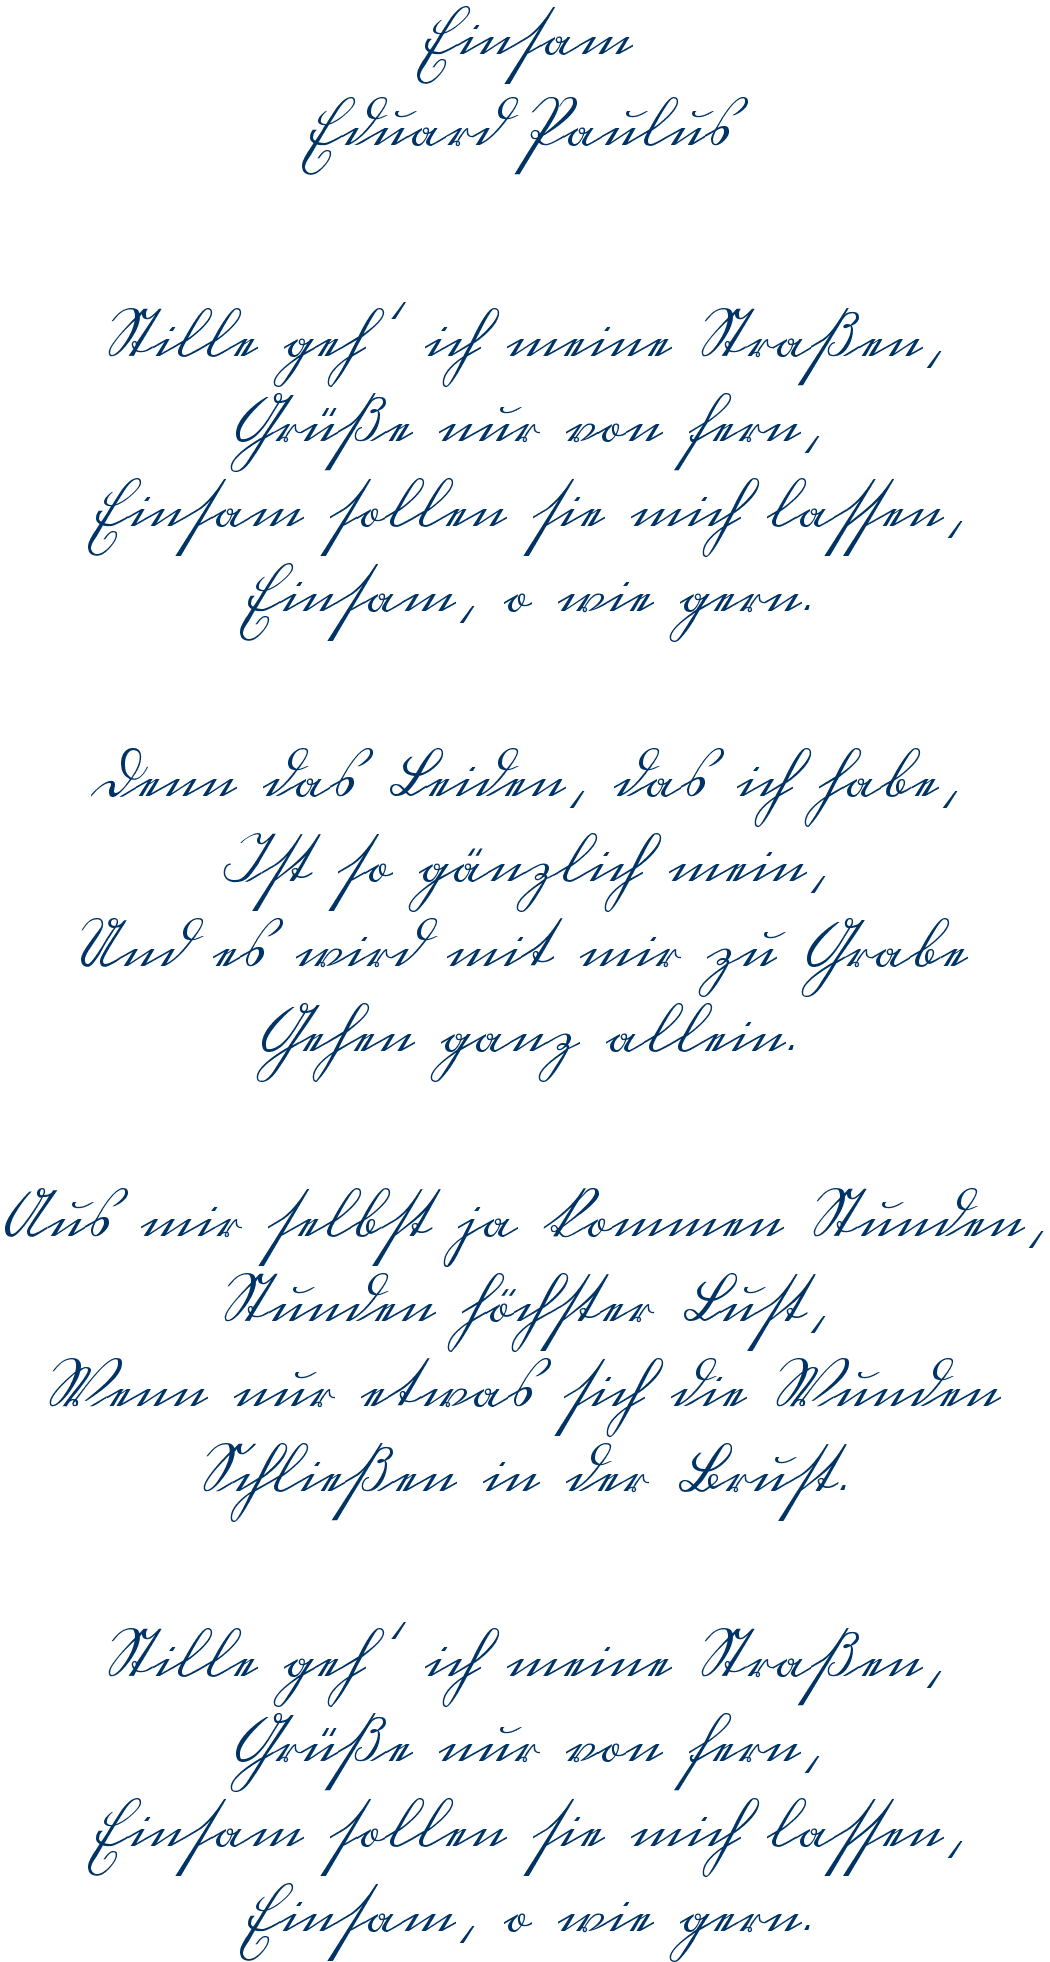 Einsam
Eduard Paulus
Stille geh' ich meine Straßen,
Grüße nur von fern,
Einsam sollen sie mich lassen,
Einsam, o wie gern.
Denn das Leiden, das ich habe,
Ist so gänzlich mein,
Und es wird mit mir zu Grabe
Gehen ganz allein.
Aus mir selbst ja kommen Stunden,
Stunden höchster Lust,
Wenn nur etwas sich die Wunden
Schließen in der Brust.
Stille geh' ich meine Straßen,
Grüße nur von fern,
Einsam sollen sie mich lassen,
Einsam, o wie gern.